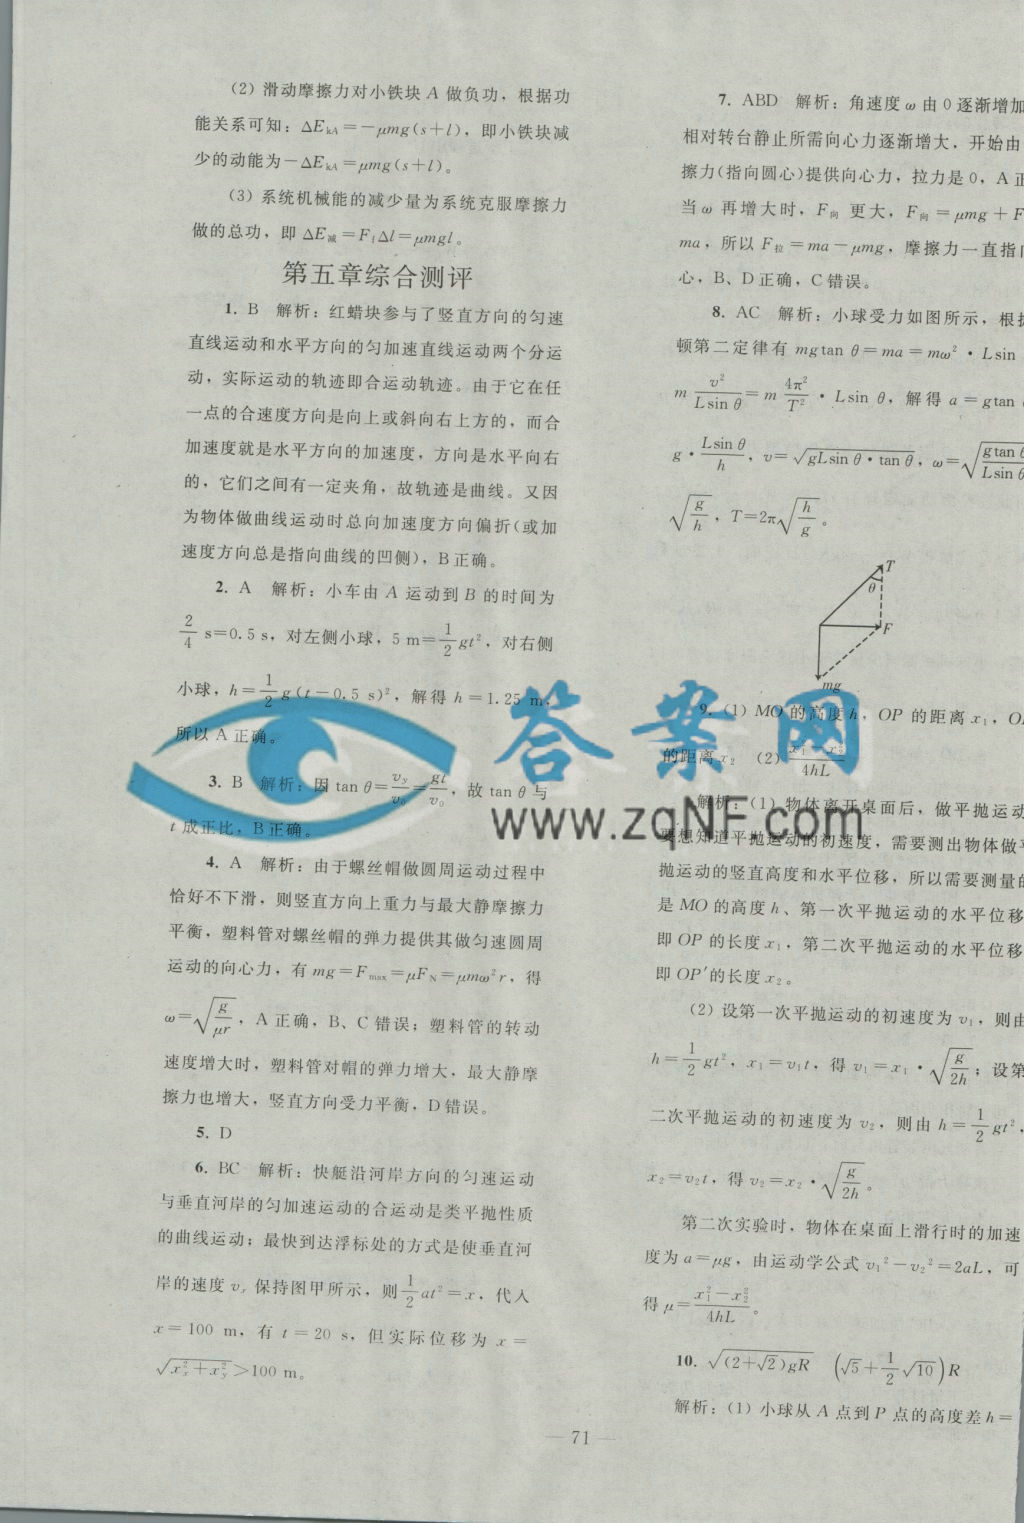 (2) 滑动摩擦力对小铁块 A 做负功，根据功
能关系可知：ΔE_kA＝－μmg(s＋l)，即小铁块减
少的动能为－ΔE_kA＝μmg(s＋l)。
(3) 系统机械能的减少量为系统克服摩擦力
做的总功，即 ΔE减＝F_fΔl＝μmgl。
第五章综合测评
1. B 解析：红蜡块参与了竖直方向的匀速
直线运动和水平方向的匀加速直线运动两个分运
动，实际运动的轨迹即合运动轨迹。由于它在任
一点的合速度方向是向上或斜向右上方的，而合
加速度就是水平方向的加速度，方向是水平向右
的，它们之间有一定夹角，故轨迹是曲线。又因
为物体做曲线运动时总向加速度方向偏折(或加
速度方向总是指向曲线的凹侧)，B正确。
2. A 解析：小车由 A 运动到 B 的时间为
2/4 s＝0.5 s，对左侧小球，5 m＝1/2 gt²，对右侧
小球，h＝1/2 g(t－0.5 s)²，解得 h＝1.25 m，
所以 A 正确。
3. B 解析：因 tan θ＝v_y/v₀＝gt/v₀，故 tan θ 与
t 成正比，B正确。
4. A 解析：由于螺丝帽做圆周运动过程中
恰好不下滑，则竖直方向上重力与最大静摩擦力
平衡，塑料管对螺丝帽的弹力提供其做匀速圆周
运动的向心力，有 mg＝F_max＝μF_N＝μmω²r，得
ω＝√(g/μr)，A 正确，B、C 错误；塑料管的转动
速度增大时，塑料管对帽的弹力增大，最大静摩
擦力也增大，竖直方向受力平衡，D错误。
5. D
6. BC 解析：快艇沿河岸方向的匀速运动
与垂直河岸的匀加速运动的合运动是类平抛性质
的曲线运动；最快到达浮标处的方式是使垂直河
岸的速度 v_x 保持图甲所示，则 1/2 at²＝x，代入
x＝100 m，有 t＝20 s，但实际位移为 x＝
√(x_x²＋x_y²)＞100 m。
7. ABD 解析：角速度 ω 由 0 逐渐增加
相对转台静止所需向心力逐渐增大，开始由
擦力(指向圆心)提供向心力，拉力是 0，A 正
当 ω 再增大时，F向 更大，F向＝μmg＋F
ma，所以 F拉＝ma－μmg，摩擦力一直指向
心，B、D正确，C错误。
8. AC 解析：小球受力如图所示，根据
顿第二定律有 mgtan θ＝ma＝mω²·Lsin
m v²/(Lsin θ)＝m 4π²/T²·Lsin θ，解得 a＝gtan θ
g·Lsin θ/h，v＝√(gLsin θ·tan θ)，ω＝√(gtan θ/Lsin θ)
√(g/h)，T＝2π√(h/g)。
T
θ
F
mg
9. (1) MO 的高度 h，OP 的距离 x₁，O
的距离 x₂ (2) (x₁²－x₂²)/4hL
解析：(1) 物体离开桌面后，做平抛运动
要想知道平抛运动的初速度，需要测出物体做平
抛运动的竖直高度和水平位移，所以需要测量的
是 MO 的高度 h、第一次平抛运动的水平位移
即 OP 的长度 x₁，第二次平抛运动的水平位移
即 OP′的长度 x₂。
(2) 设第一次平抛运动的初速度为 v₁，则由
h＝1/2 gt²，x₁＝v₁t，得 v₁＝x₁·√(g/2h)；设第
二次平抛运动的初速度为 v₂，则由 h＝1/2 gt²，
x₂＝v₂t，得 v₂＝x₂·√(g/2h)。
第二次实验时，物体在桌面上滑行时的加速
度为 a＝μg，由运动学公式 v₁²－v₂²＝2aL，可
得 μ＝(x₁²－x₂²)/4hL。
10. √((2＋√2)gR) (√5＋1/2 √10)R
解析：(1) 小球从 A 点到 P 点的高度差 h＝
— 71 —
答案网
www.zqNF.com